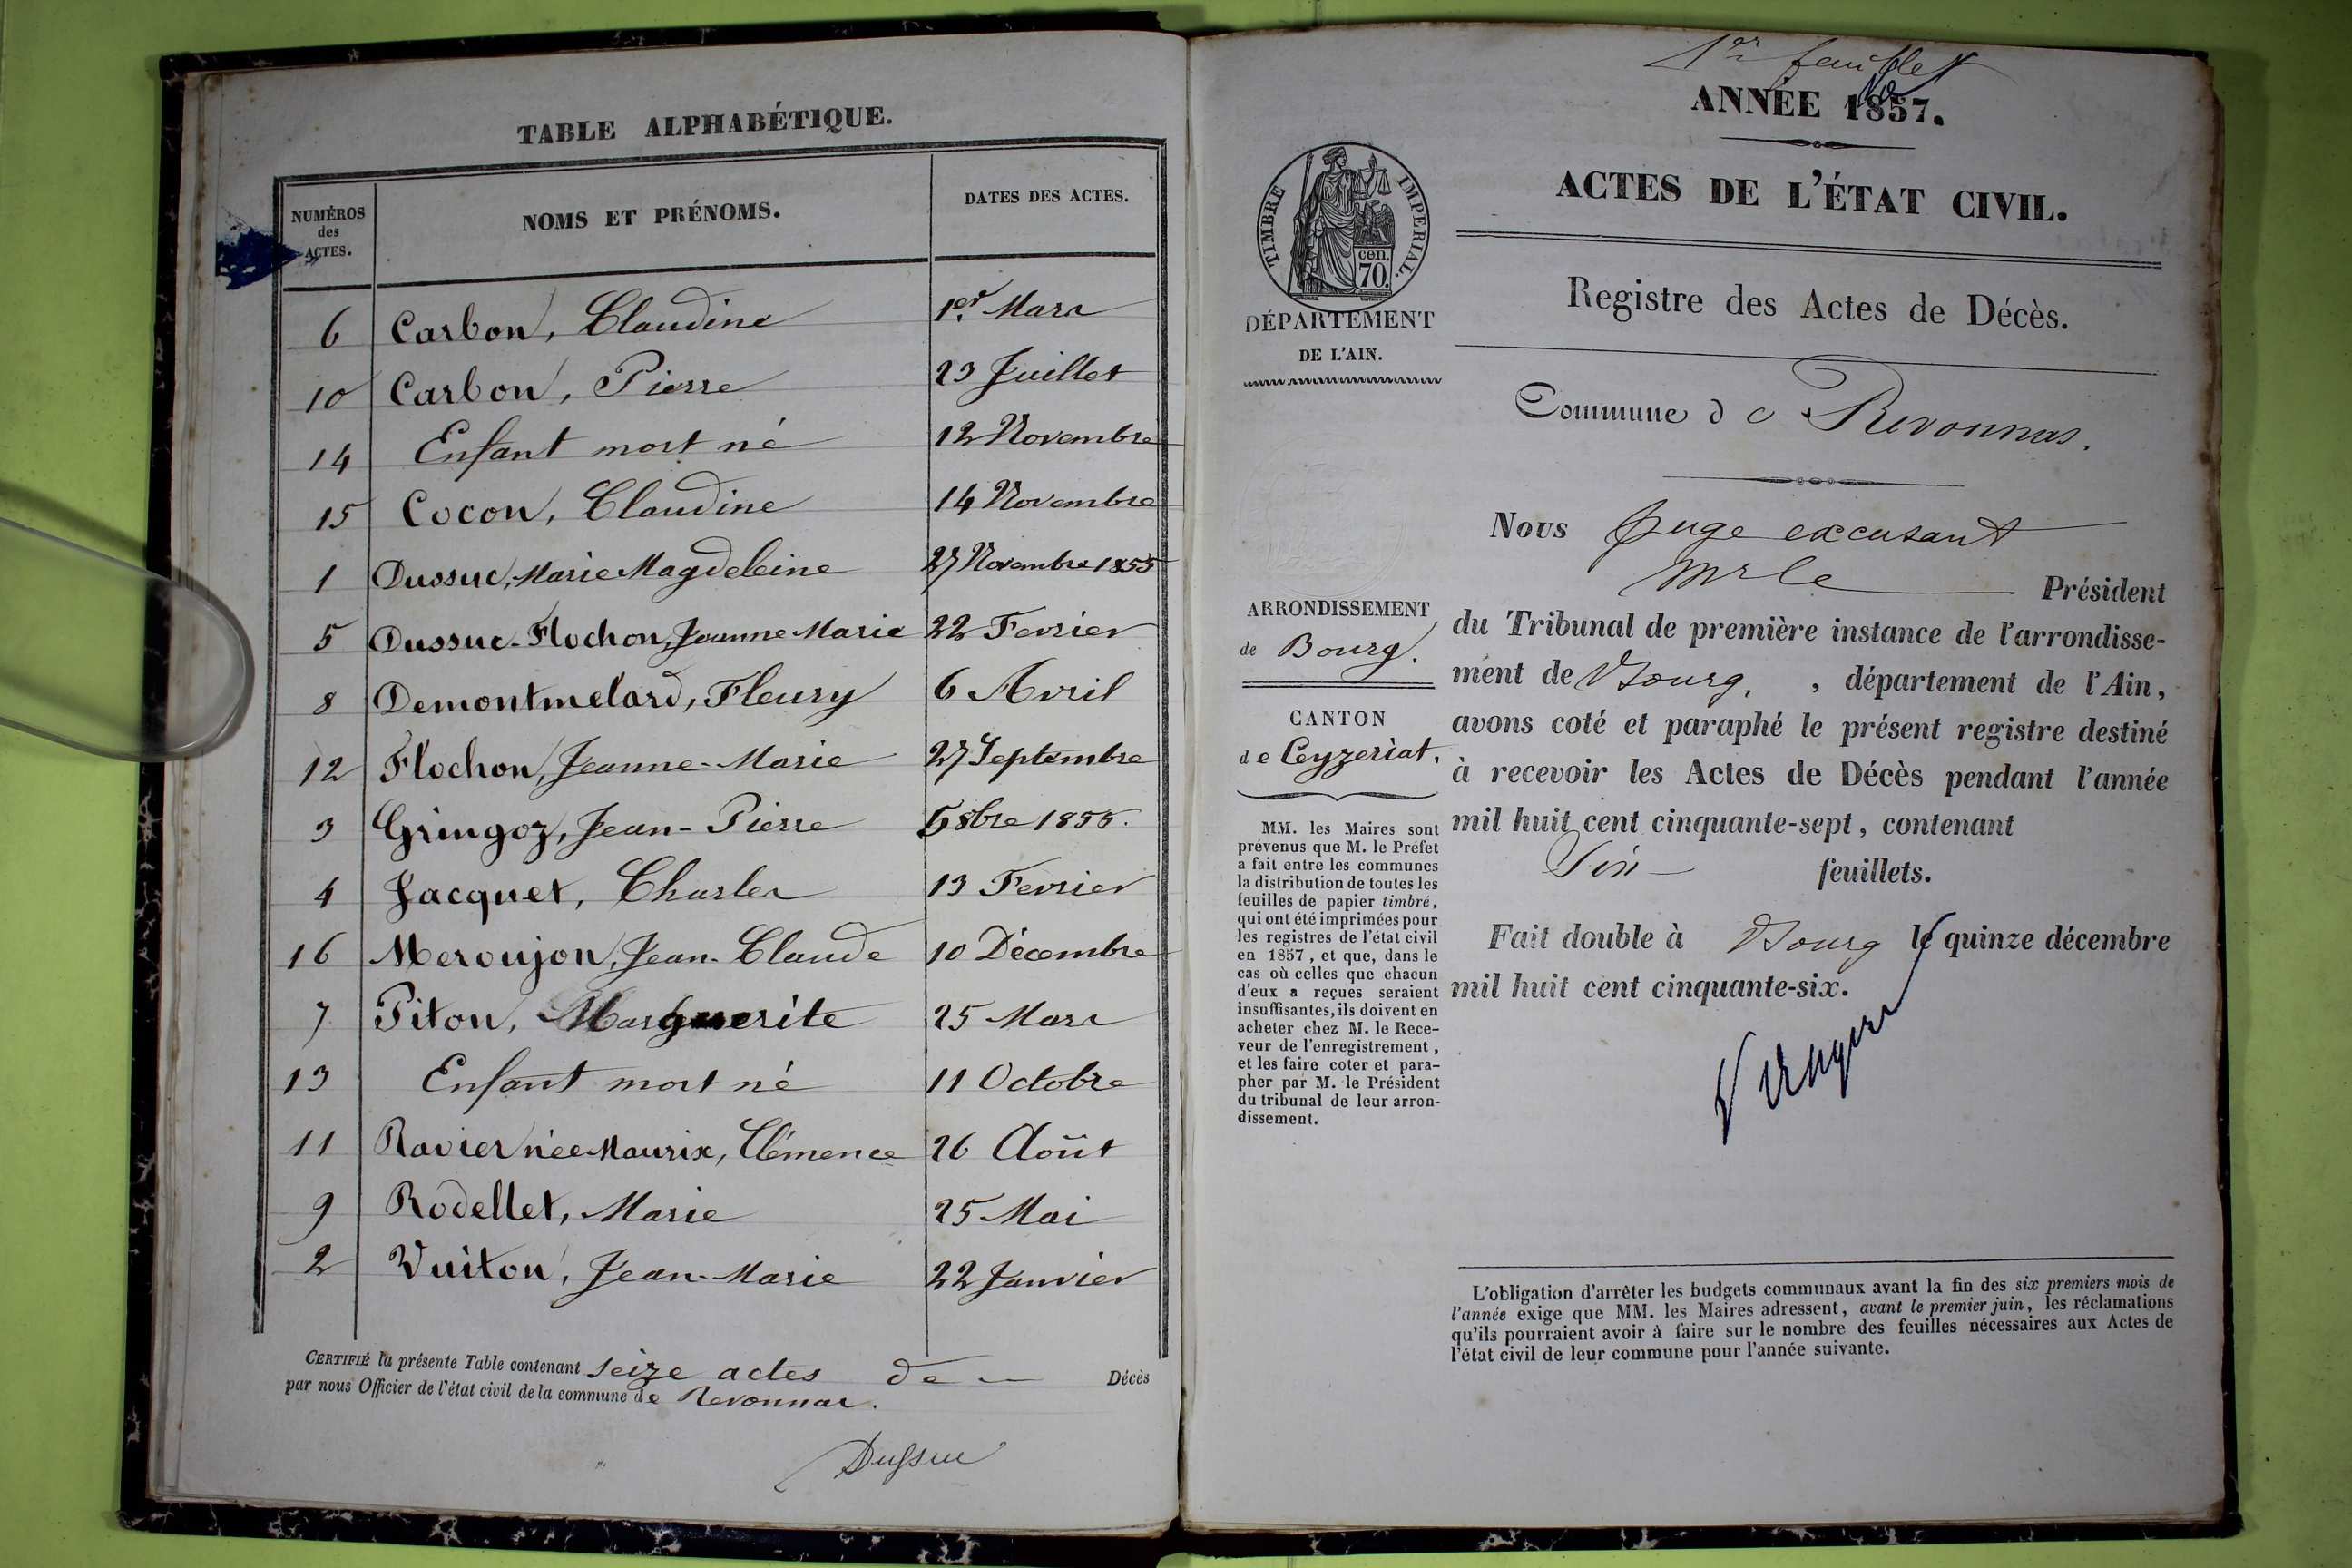 TABLE ALPHABÉTIQUE.
NUMÉROS des ACTES.
NOMS ET PRÉNOMS.
DATES DES ACTES.
6 Carbon, Claudine 1er Mars
10 Carbon, Pierre 23 Juillet
14 Enfant mort né 12 Novembre
15 Cocon, Claudine 14 Novembre
1 Dussuc, Marie Magdeleine 27 Novembre 1855
5 Dussuc-Flochon, Jeanne Marie 22 Fevrier
8 Demontmelard, Fleury 6 Avril
12 Flochon, Jeanne-Marie 27 Septembre
3 Gringoz, Jean-Pierre 5 8bre 1855.
4 Jacquet, Charles 13 Fevrier
16 Meroujon, Jean-Claude 10 Décembre
7 Piton, Marguerite 25 Mars
13 Enfant mort né 11 Octobre
11 Ravier née Maurix, Clémence 26 Août
9 Rodellet, Marie 25 Mai
2 Vuiton, Jean-Marie 22 Janvier
CERTIFIÉ la présente Table contenant seize actes de Décès
par nous Officier de l'état civil de la commune de Revonnas.
Dussuc
1er feuillet
ANNÉE 1857.
ACTES DE L'ÉTAT CIVIL.
Registre des Actes de Décès.
Commune de Revonnas.
TIMBRE IMPERIAL.
cen.
70.
DÉPARTEMENT
DE L'AIN.
ARRONDISSEMENT
de Bourg.
CANTON
de Ceyzeriat.
MM. les Maires sont
prévenus que M. le Préfet
a fait entre les communes
la distribution de toutes les
feuilles de papier timbré,
qui ont été imprimées pour
les registres de l'état civil
en 1857, et que, dans le
cas où celles que chacun
d'eux a reçues seraient
insuffisantes, ils doivent en
acheter chez M. le Rece-
veur de l'enregistrement,
et les faire coter et para-
pher par M. le Président
du tribunal de leur arron-
dissement.
Nous Juge excusant
Mr le Président
du Tribunal de première instance de l'arrondisse-
ment de Bourg, , département de l'Ain,
avons coté et paraphé le présent registre destiné
à recevoir les Actes de Décès pendant l'année
mil huit cent cinquante-sept, contenant
Six feuillets.
Fait double à Bourg le quinze décembre
mil huit cent cinquante-six.
L'obligation d'arrêter les budgets communaux avant la fin des six premiers mois de
l'année exige que MM. les Maires adressent, avant le premier juin, les réclamations
qu'ils pourraient avoir à faire sur le nombre des feuilles nécessaires aux Actes de
l'état civil de leur commune pour l'année suivante.